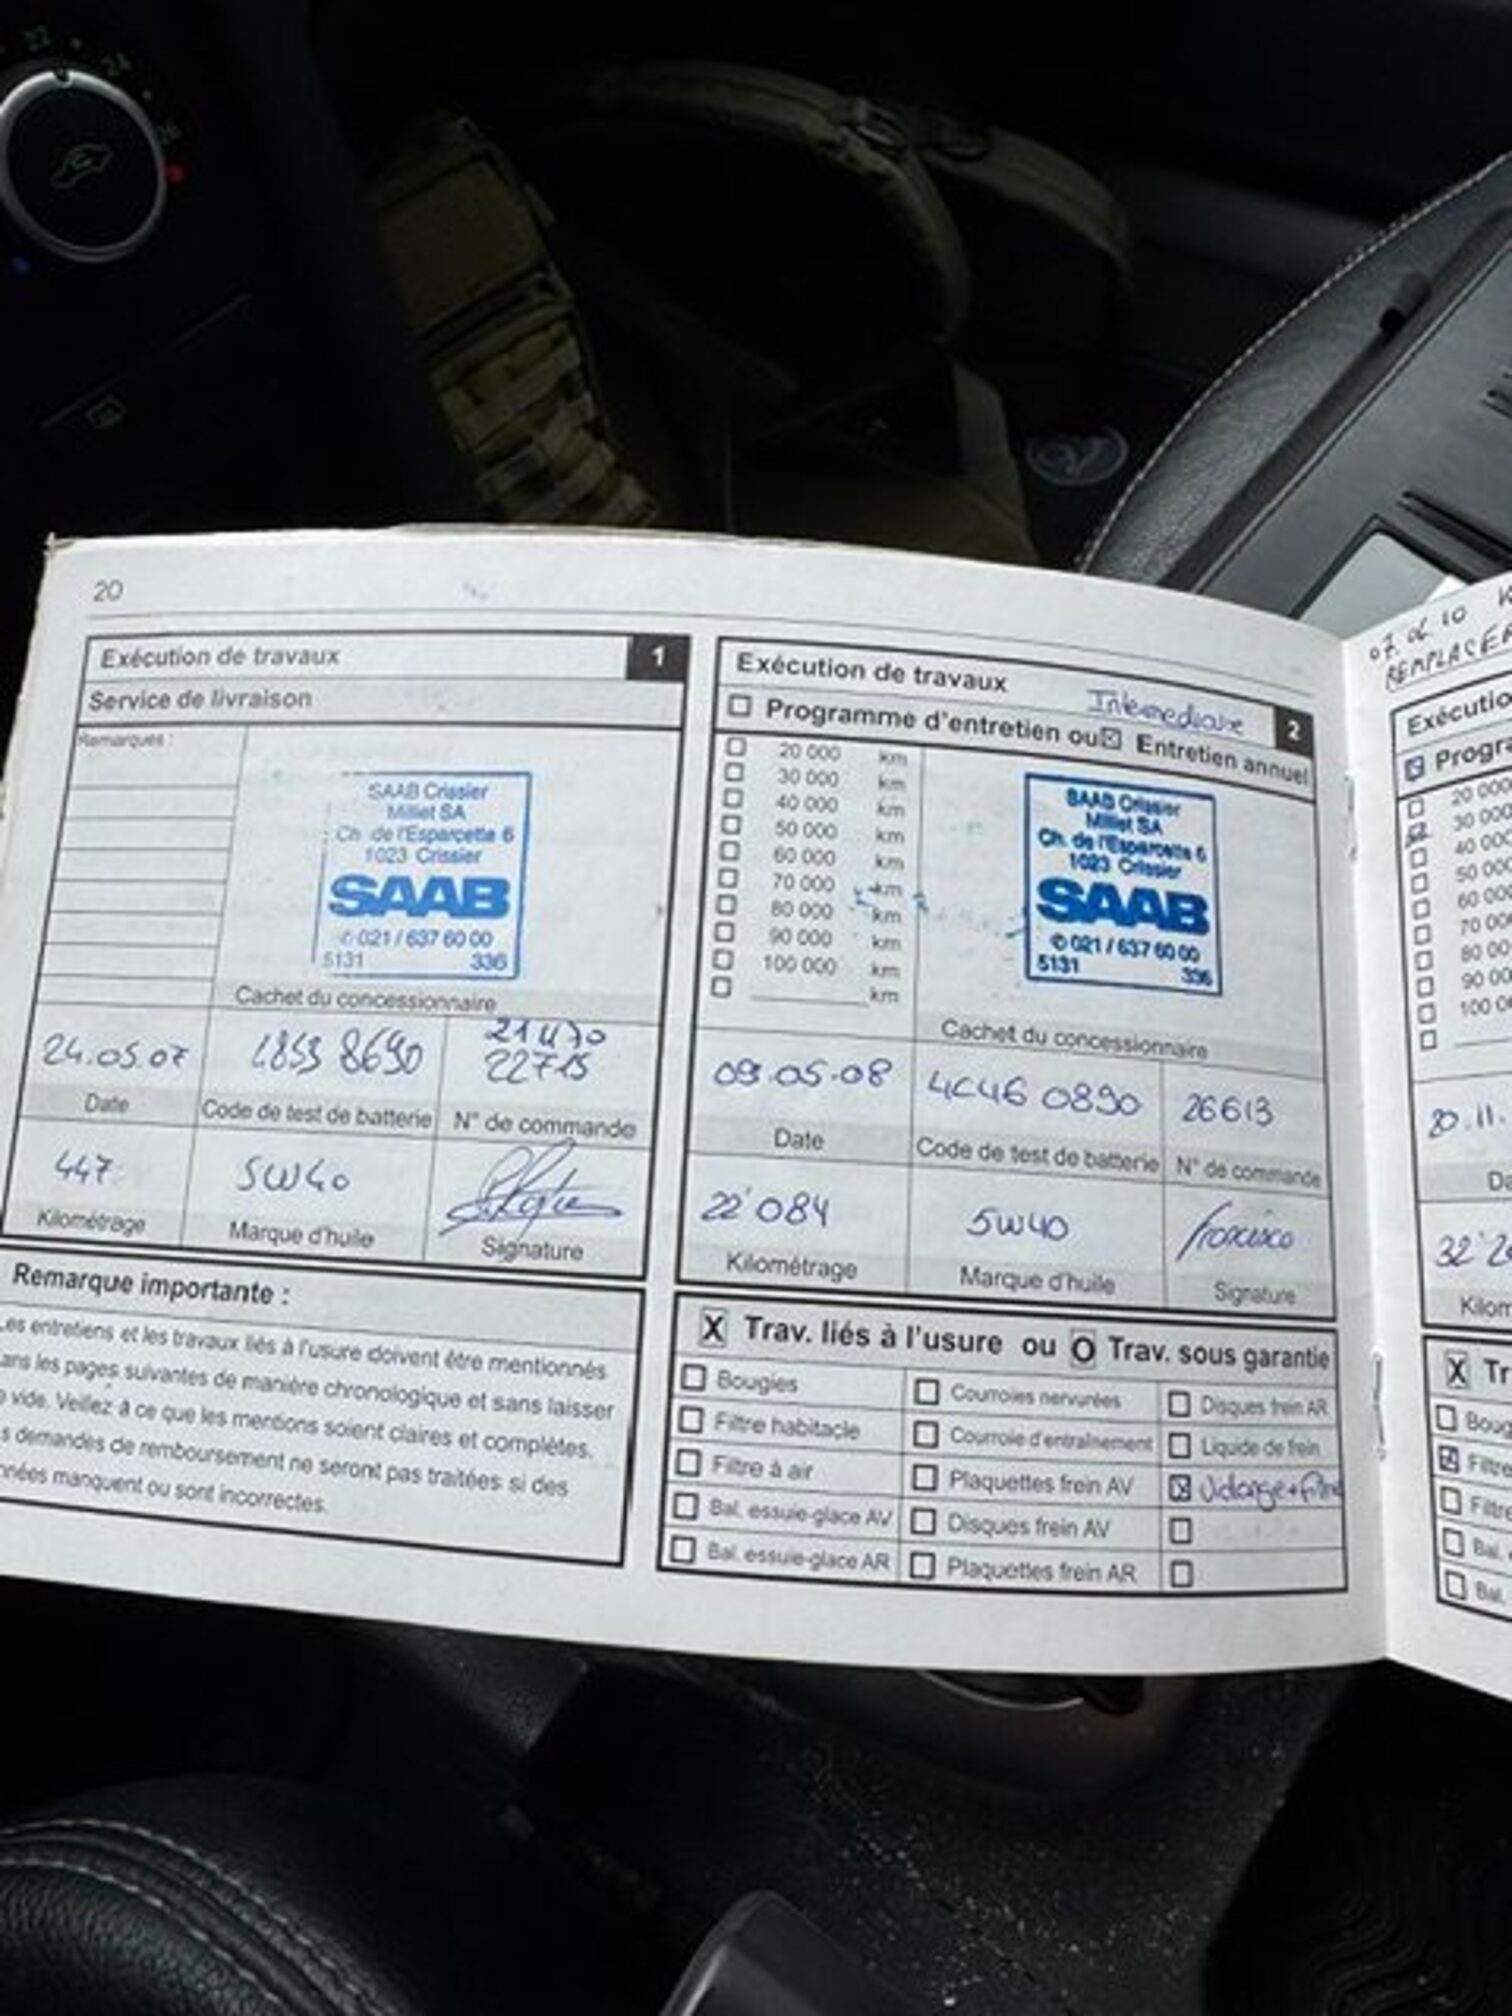 22
24
26
20
Exécution de travaux 1
Service de livraison
Remarques :
SAAB Crissier
Milliet SA
Ch. de l'Esparcette 6
1023 Crissier
SAAB
✆ 021 / 637 60 00
5131 336
Cachet du concessionnaire
21470
24.05.07 22715
Date Code de test de batterie N° de commande
447 5W40
Kilométrage Marque d'huile Signature
Remarque importante :
Les entretiens et les travaux liés à l'usure doivent être mentionnés
ans les pages suivantes de manière chronologique et sans laisser
e vide. Veillez à ce que les mentions soient claires et complètes.
s demandes de remboursement ne seront pas traitées si des
nnées manquent ou sont incorrectes.
Exécution de travaux Intermédiaire 2
Programme d'entretien ou Entretien annuel
20 000 km
30 000 km
40 000 km
50 000 km
60 000 km
70 000 km
80 000 km
90 000 km
100 000 km
km
SAAB Crissier
Milliet SA
Ch. de l'Esparcette 6
1023 Crissier
SAAB
✆ 021 / 637 60 00
5131 336
Cachet du concessionnaire
09.05.08 4C46 0890 26613
Date Code de test de batterie N° de commande
22'084 5W40 Francisco
Kilométrage Marque d'huile Signature
X Trav. liés à l'usure ou O Trav. sous garantie
Bougies Courroies nervurées Disques frein AR
Filtre habitacle Courroie d'entraînement Liquide de frein
Filtre à air Plaquettes frein AV X Vidange + filtre
Bal. essuie-glace AV Disques frein AV
Bal. essuie-glace AR Plaquettes frein AR
REMPLACE
Exécutio
Progra
20 000
30 000
40 000
50 00
60 00
70 00
80 00
90 00
100 0
20.11.
Da
32'2
Kilom
X Tr
Boug
Filtre
Filtre
Bal.
Bal.